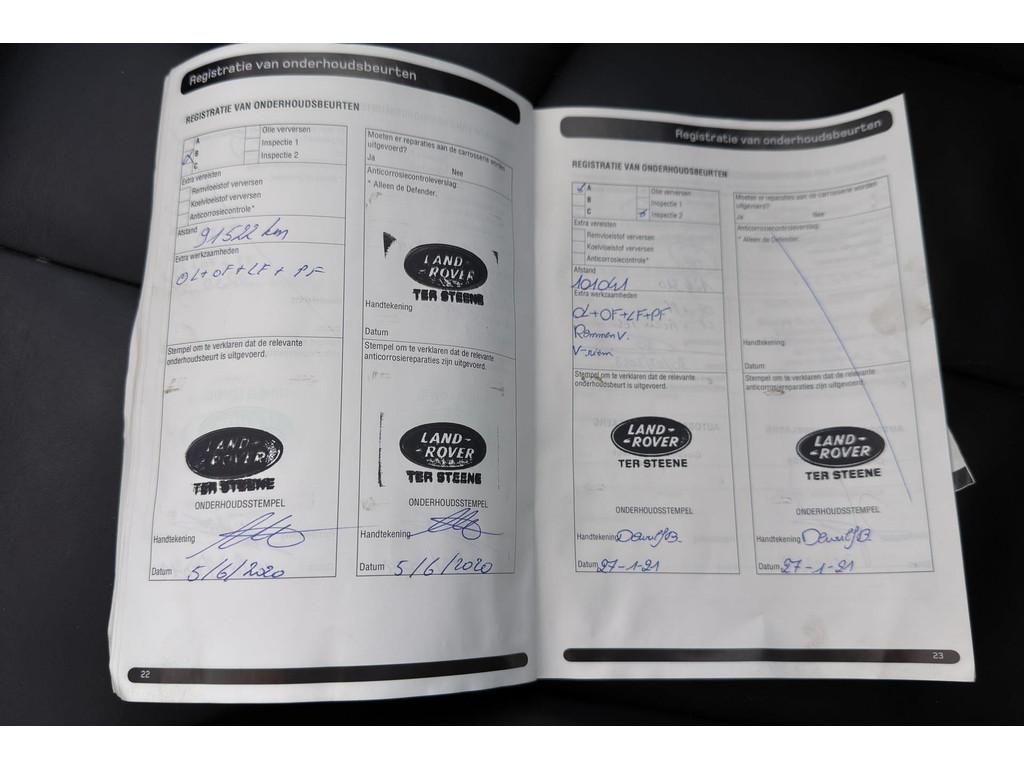 Registratie van onderhoudsbeurten
REGISTRATIE VAN ONDERHOUDSBEURTEN
A
B
C
Olie verversen
Inspectie 1
Inspectie 2
Extra vereisten
Remvloeistof verversen
Koelvloeistof verversen
Anticorrosiecontrole*
Afstand 91522 km
Extra werkzaamheden
OL+OF+LF+PF
Stempel om te verklaren dat de relevante
onderhoudsbeurt is uitgevoerd.
LAND-
-ROVER
TER STEENE
ONDERHOUDSSTEMPEL
Handtekening
Datum 5/6/2020
Moeten er reparaties aan de carrosserie worden
uitgevoerd?
Ja Nee
Anticorrosiecontroleverslag:
* Alleen de Defender.
LAND-
-ROVER
TER STEENE
Handtekening
Datum
Stempel om te verklaren dat de relevante
anticorrosiereparaties zijn uitgevoerd.
LAND-
-ROVER
TER STEENE
ONDERHOUDSSTEMPEL
Handtekening
Datum 5/6/2020
22
Registratie van onderhoudsbeurten
REGISTRATIE VAN ONDERHOUDSBEURTEN
A
B
C
Olie verversen
Inspectie 1
Inspectie 2
Extra vereisten
Remvloeistof verversen
Koelvloeistof verversen
Anticorrosiecontrole*
Afstand
101041
Extra werkzaamheden
OL+OF+LF+PF
Remmen V.
V-riem
Stempel om te verklaren dat de relevante
onderhoudsbeurt is uitgevoerd.
LAND-
-ROVER
TER STEENE
ONDERHOUDSSTEMPEL
Handtekening
Datum 27-1-21
Moeten er reparaties aan de carrosserie worden
uitgevoerd?
Ja Nee
Anticorrosiecontroleverslag:
* Alleen de Defender.
Handtekening:
Datum:
Stempel om te verklaren dat de relevante
anticorrosiereparaties zijn uitgevoerd.
LAND-
-ROVER
TER STEENE
ONDERHOUDSSTEMPEL
Handtekening
Datum 27-1-21
23